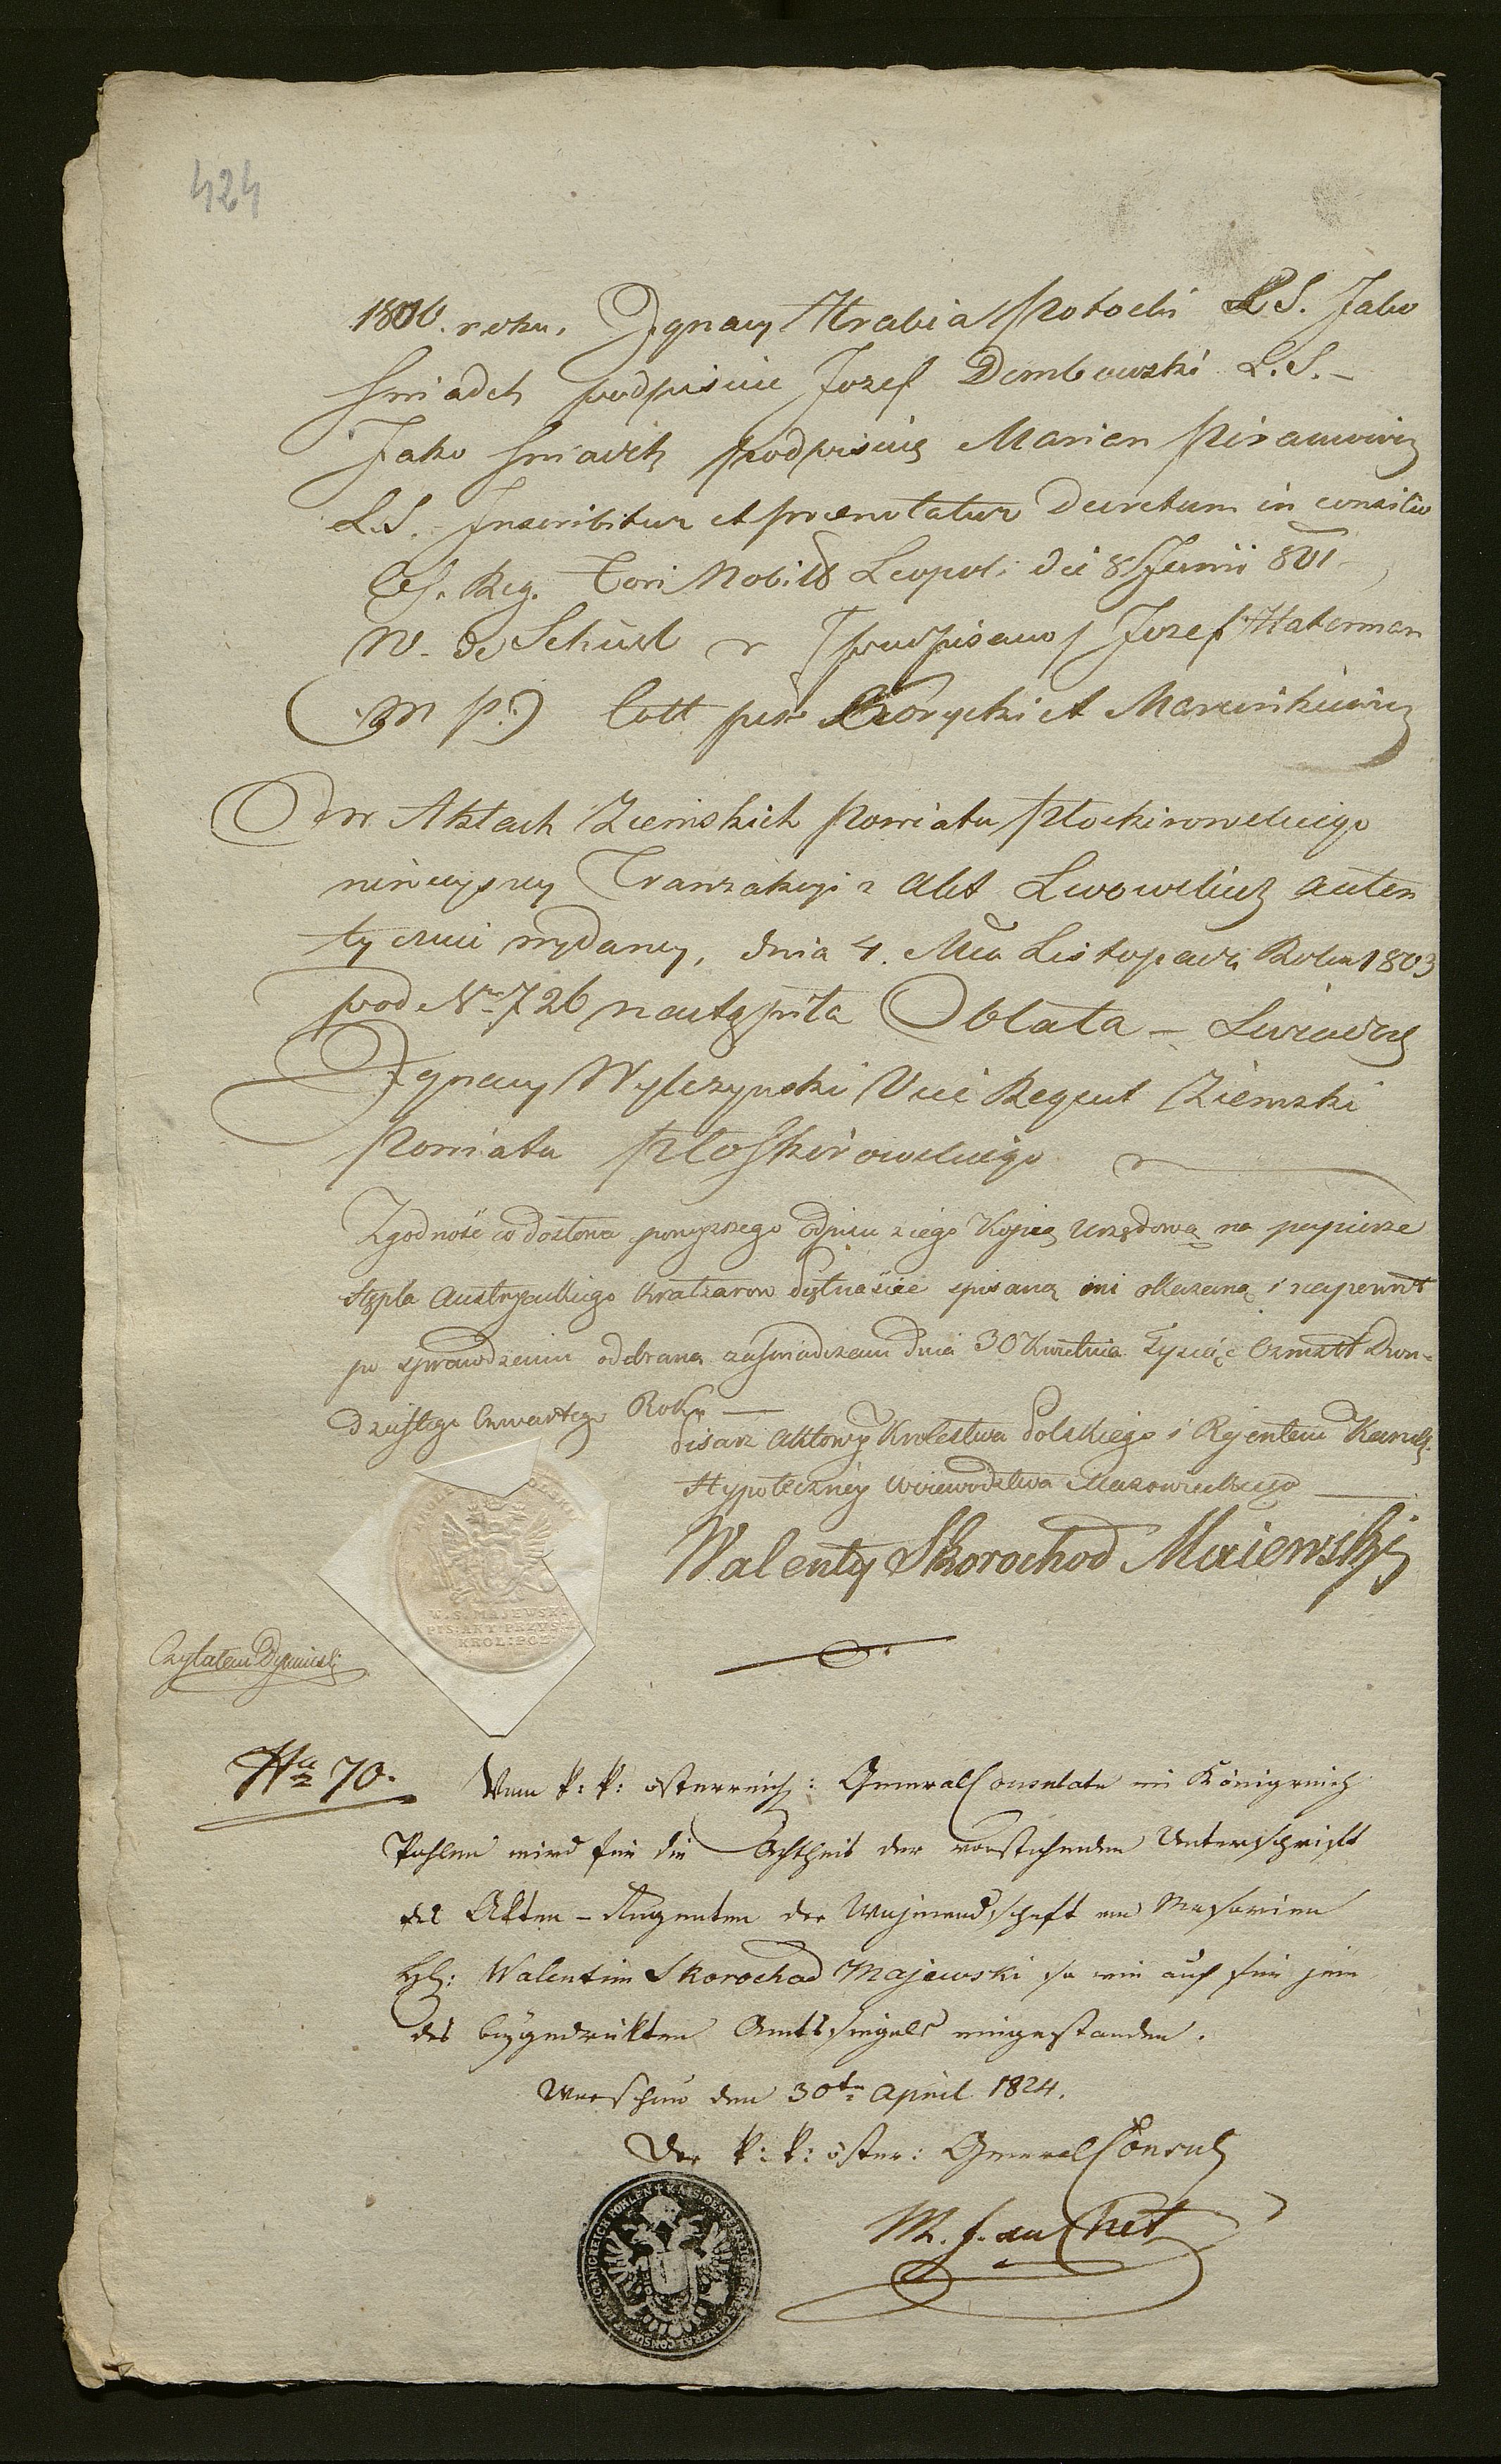 424
1800. roku, Jgnacy Hrabia Potocki L.S. Jako
Swiadek podpisuie Jozef Dembowski L.S. –
Jako Swiadek podpisuię Marian Piramowicz
L.S. – Inscribitur et prænotatur Decretum in consilio
Cæs. Reg. Fori Nobil Leopol: die 8 Junii 801
W. de Schüsl r (podpisano) Jozef Haberman
(m p.) Coll per Gorycki et Marcinkiewicz
Od w Aktach Ziemskich Powiatu Płoskirowskiego
ninieyszey Tranzakcyi z Akt Lwowskich auten
tycznie wydaney, dnia 4. Mca Listopada Roku 1803
pod Nrm 726 nastąpiła Oblata –
Jgnacy Wylczynski Vice Regent Ziemski
Powiatu Płoskirowskiego
Zgodność co do słowa powyższego Odpisu z iego Kopią Urzędową na papierze
Stępla Austryackiego Kraicarow Piętnaście spisaną mi okazaną i napowrot
po sprawdzeniu odebraną zaświadczam dnia 30 Kwietnia Tysiąc Ośmset Dwu-
dziestego Czwartego Roku —
Pisarz Aktowy Krolestwa Polskiego i Rejentem Kancel.
Hypoteczney Woiewodztwa Mazowieckiego —
Walenty Skorochod Maiewski
W. S. MAJEWSKI
PIS: AKT: PRZYS:
KROL: POL:
Czytałem
Nro 70.
Vom k: k: österreich: General Consulate im Königreich
Pohlen wird für die Ächtheit der vorstehenden Unterschrift
des Akten-Regenten der Wojewodschaft von Masovien
H: Walentin Skorochod Majewski so wie auch für jene
des beygedrükten Amtssiegels eingestanden.
Warschau den 30ten April 1824.
Der k: k: öster: General Consul